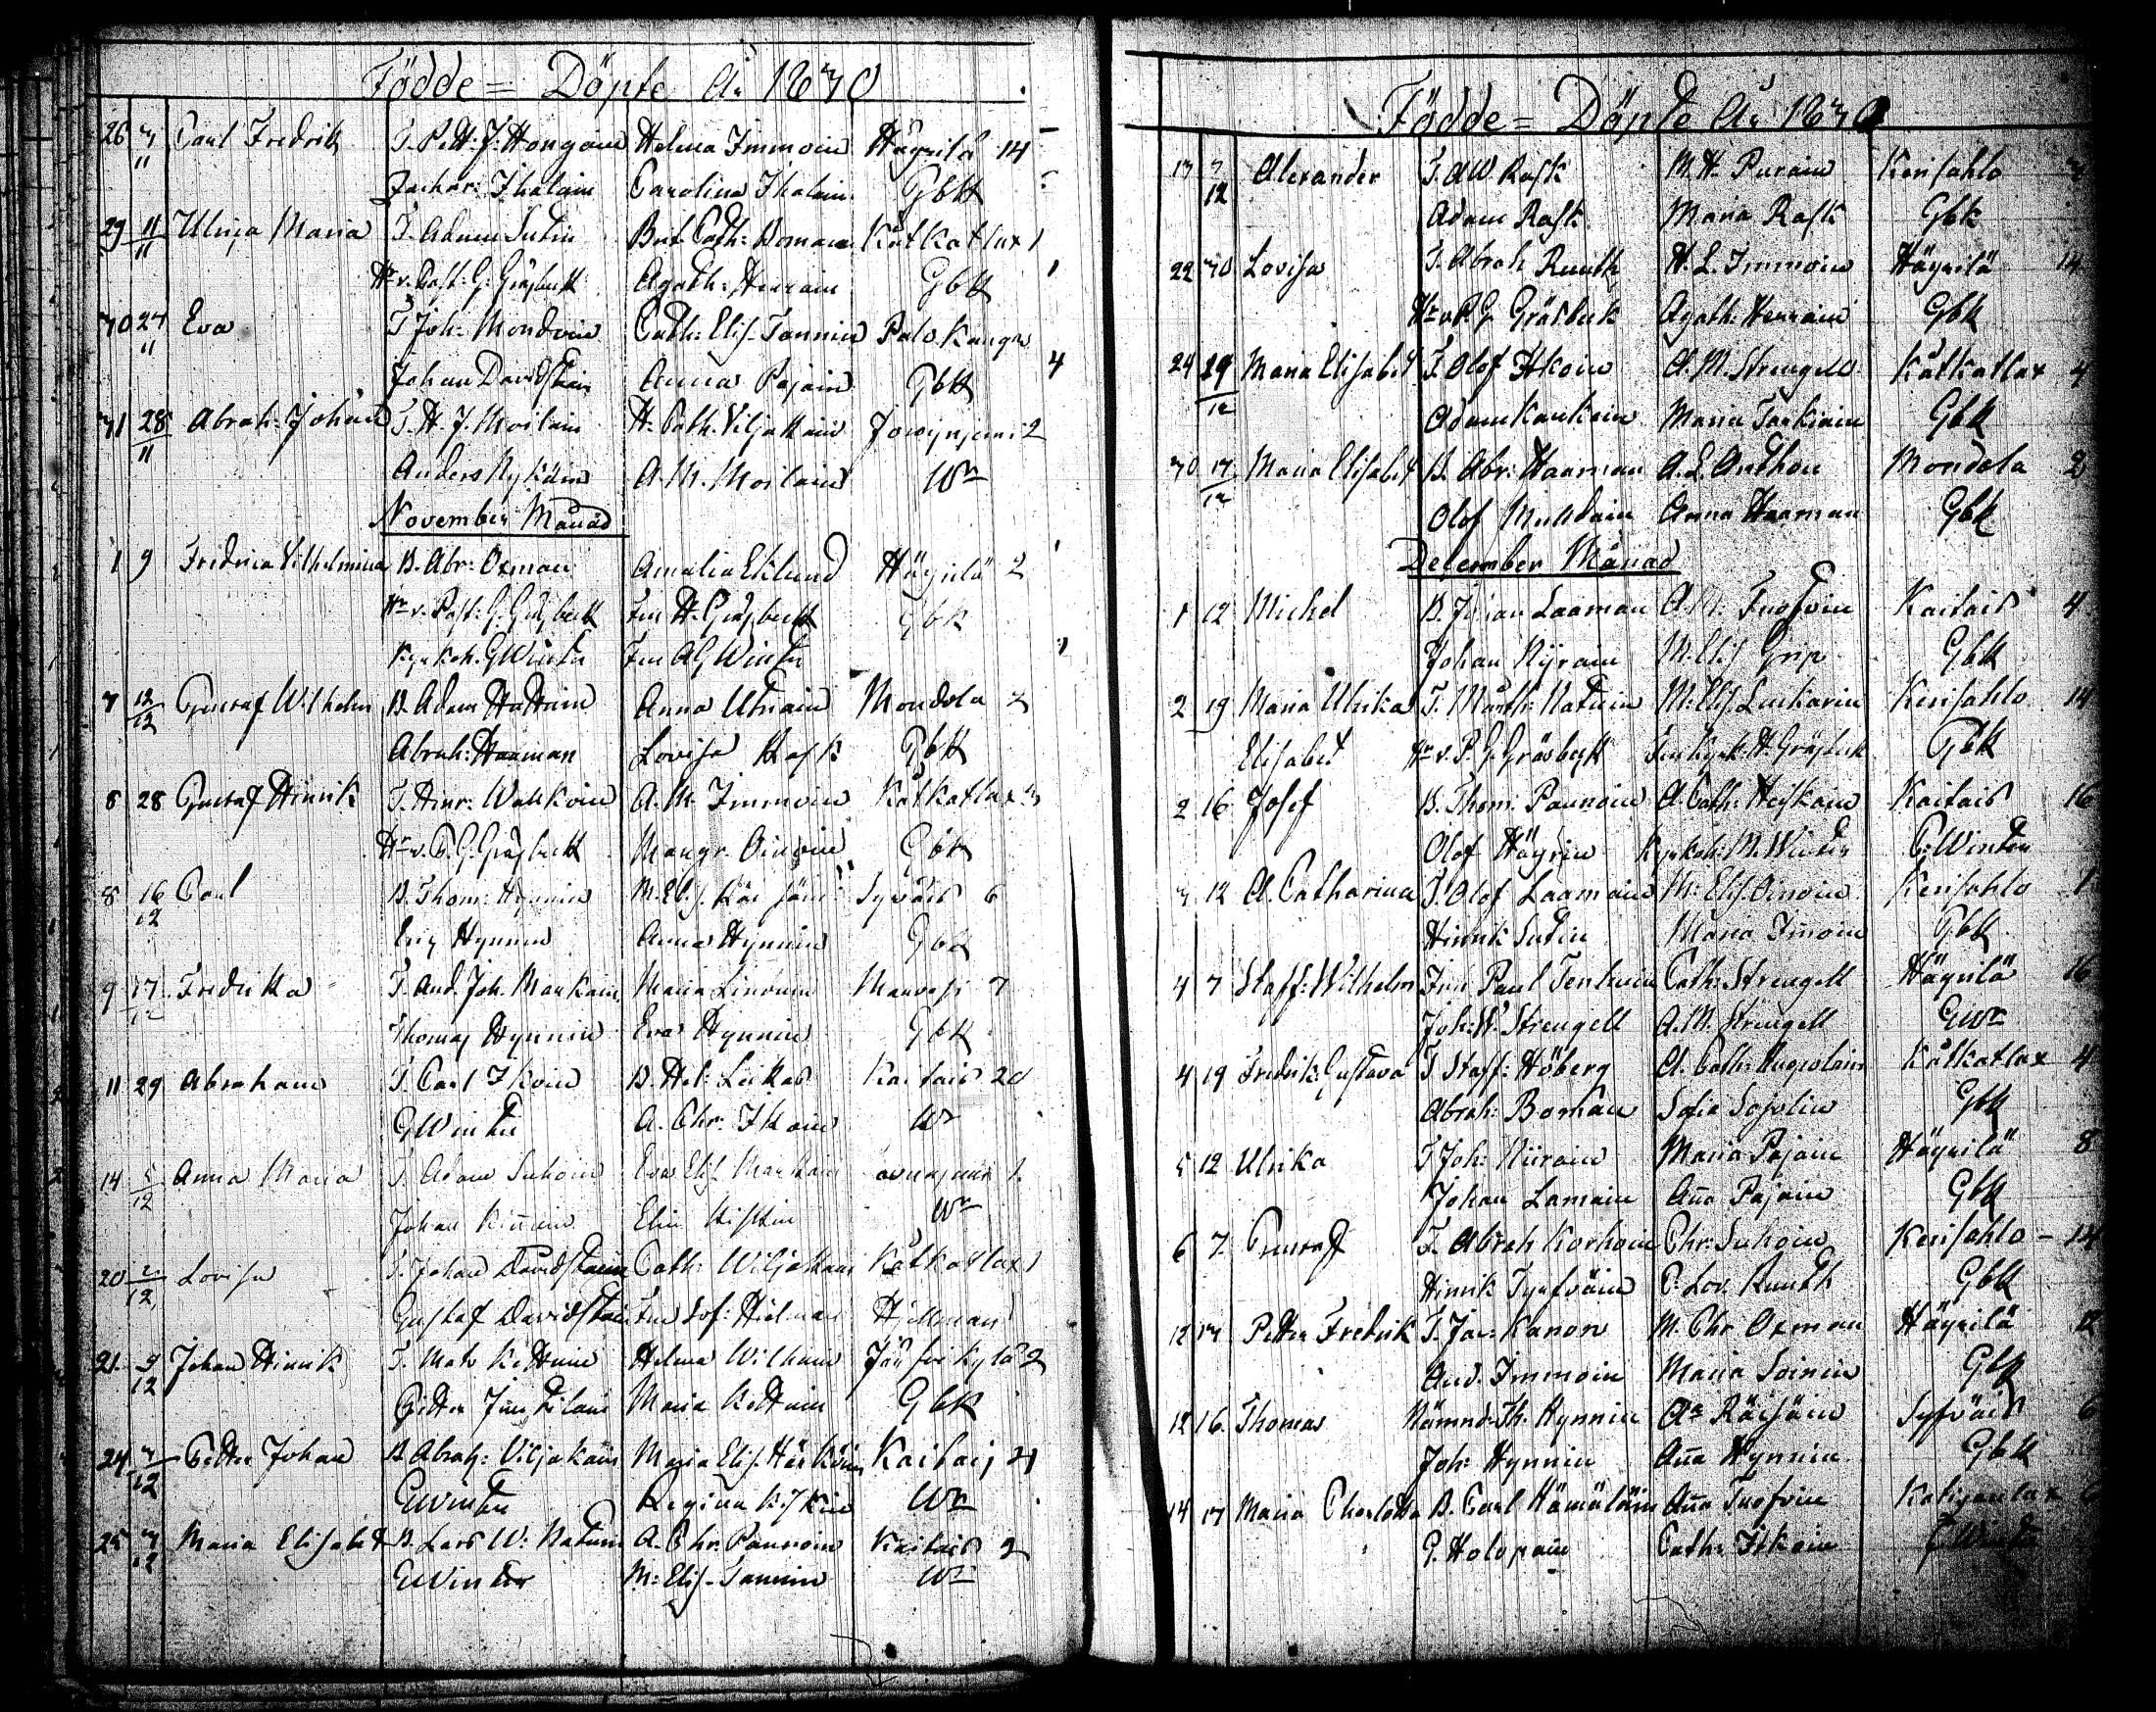 Födde = Döpte År 1830
26 3/11 Carl Fredrik T. Pett: J: Hongain Helena Immoin Häyrilä 14
Zachar: Ihalain Carolina Ihalain GbK
29 11/11 Ulrica Maria T. Adam Sutin Cath: Boman Kåtkatlax 1
Hr v. Past: G: Gräsbeck Agath: Heurain GbK
30 27/11 Eva T Joh: Mondoin Cath: Elis. Tannin Palokangas
Johan Davidstain Anna Pajain GbK 4
31 28/11 Abrah: Johan T. H. J. Moilain H: Cath. Viljakain 2
Anders Nykäin A. M. Moilain Wr
November Månad
1 9 Fridrica Vilhelmina B. Abr: Oxman Amalia Eklund Häyrilä 2
Hr v. Past: G: Gräsbeck Fru H. Gräsbeck GbK
Kyrkoh. G Winter Fru A G Winter
3 12/12 Gustaf Wilhelm B. Adam Hattuin Anna Utriain Mondola 2
Abrah: Haaman Lovisa Rask GbK
8 28 Gustaf Hinrik T. Hinr: Wallkoin A. M. Immoin Kåtkatlax 3
Hr v. P. G. Gräsbeck Margr. Oinoin GbK
8 16/12 Paul B. Thom: Hynnin M. Elis. Räisäin Syväis 6
Eric Hynnin Anna Hynnin GbK
9 17/12 Fredrika T. And. Joh. Maukain Maria Linnuin 7
Thomas Hynnin Eva Hynnin GbK
11 29 Abraham T. Carl Ikoin B. Hel: Leikas Kaitais 20
G Winter A. Chr. Ikoin Wr
14 5/12 Anna Maria T. Adam Suhoin Eva Elis. 1.
Johan Elin Wr
20 2/12 Lovisa T. Johan Davidstain Cath: Wiljakain Kåtkatlax 1
Gustaf Davidstain Fru Sof: Hielman Hjellman
21 9/12 Johan Hinrik T. Mats Kettuin Helena Wilhuin 2
Petter Maria Kettuin GbK
24 3/12 Petter Johan B Abrah: Viljakain Maria Elis. Härköin Kaitais 21
G Winter Regina Wr
25 3/12 Maria Elisabet B. Lars W: Natuin A. Chr. Paunoin Kaitais 2
G Winter M: Elis. Tannin Wr
Födde = Döpte År 1830
13 3/12 Alexander T. A W Rask M. H. Purain Kerisahlo 3
Adam Rask Maria Rask GbK
22 30 Lovisa T. Abrah Ruuth H. L. Immoin Häyrilä 14
Hr v. P. G. Gräsbeck Agath: Heurain GbK
24 29/12 Maria Elisabet T. Olof Itkoin A. M. Strengell Kåtkatlax 4
Adam Kaukoin Maria Tarkiain GbK
30 17/12 Maria Elisabet B. Abr: Haaman A. L. Anthon Mondola 2
Olof Anna Haaman GbK
December Månad
1 12 Michel B. Johan Laaman A. M. Tuofvin Kaitais 4
Johan Nijrain M. Elis Grip GbK
2 19 Maria Ulrika T. Märth: Natuin M: Elis. Luckarin Kerisahlo 14
Elisabet Hr v. P. G. Gräsbeck Fru Kyrk. H. Gräsbeck GbK
2 16 Josef B. Thom: Paunoin A Cath: Heiskain Kaitais 16
Olof Häyrin Kyrkoh: M. Winter G: Winter
3 12 A. Catharina T. Olof Laamain M: Elis. Oinoin Kerisahlo 1
Hinrik Sutin Maria Imoin GbK
4 7 Staff: Wilhelm Paul Cath: Strengell Häyrilä 16
Joh: W. Strengell A. M. Strengell G Wr
4 19 Fredrik: Gustava T Staff: Höberg A. Cath: Ruopolain Kåtkatlax 4
Abrah: Boman Sofia Sopolin GbK
5 12 Ulrika T Joh: Niirain Maria Pajain Häyrilä 8
Johan Lamain Aña Pajain GbK
6 7. Gustaf T. Abrah Korhoin Chr: Suhoin Kerisahlo - 14
Hinrik C: Lov. Ruuth GbK
12 13 Petter Fredrik T. Jac: Kanon M. Chr. Oxman Häyrilä 12
And. Immoin Maria Soinin GbK
12 16. Thomas Nämnd: Th. Hynnin Aa Räisäin Syfväis 6
Joh: Hynnin Aña Hynnin GbK
14 17 Maria Charlotta B. Carl Hämäläin Aña Tuofvin 6
G. Holopain Cath: Itkoin G Winter